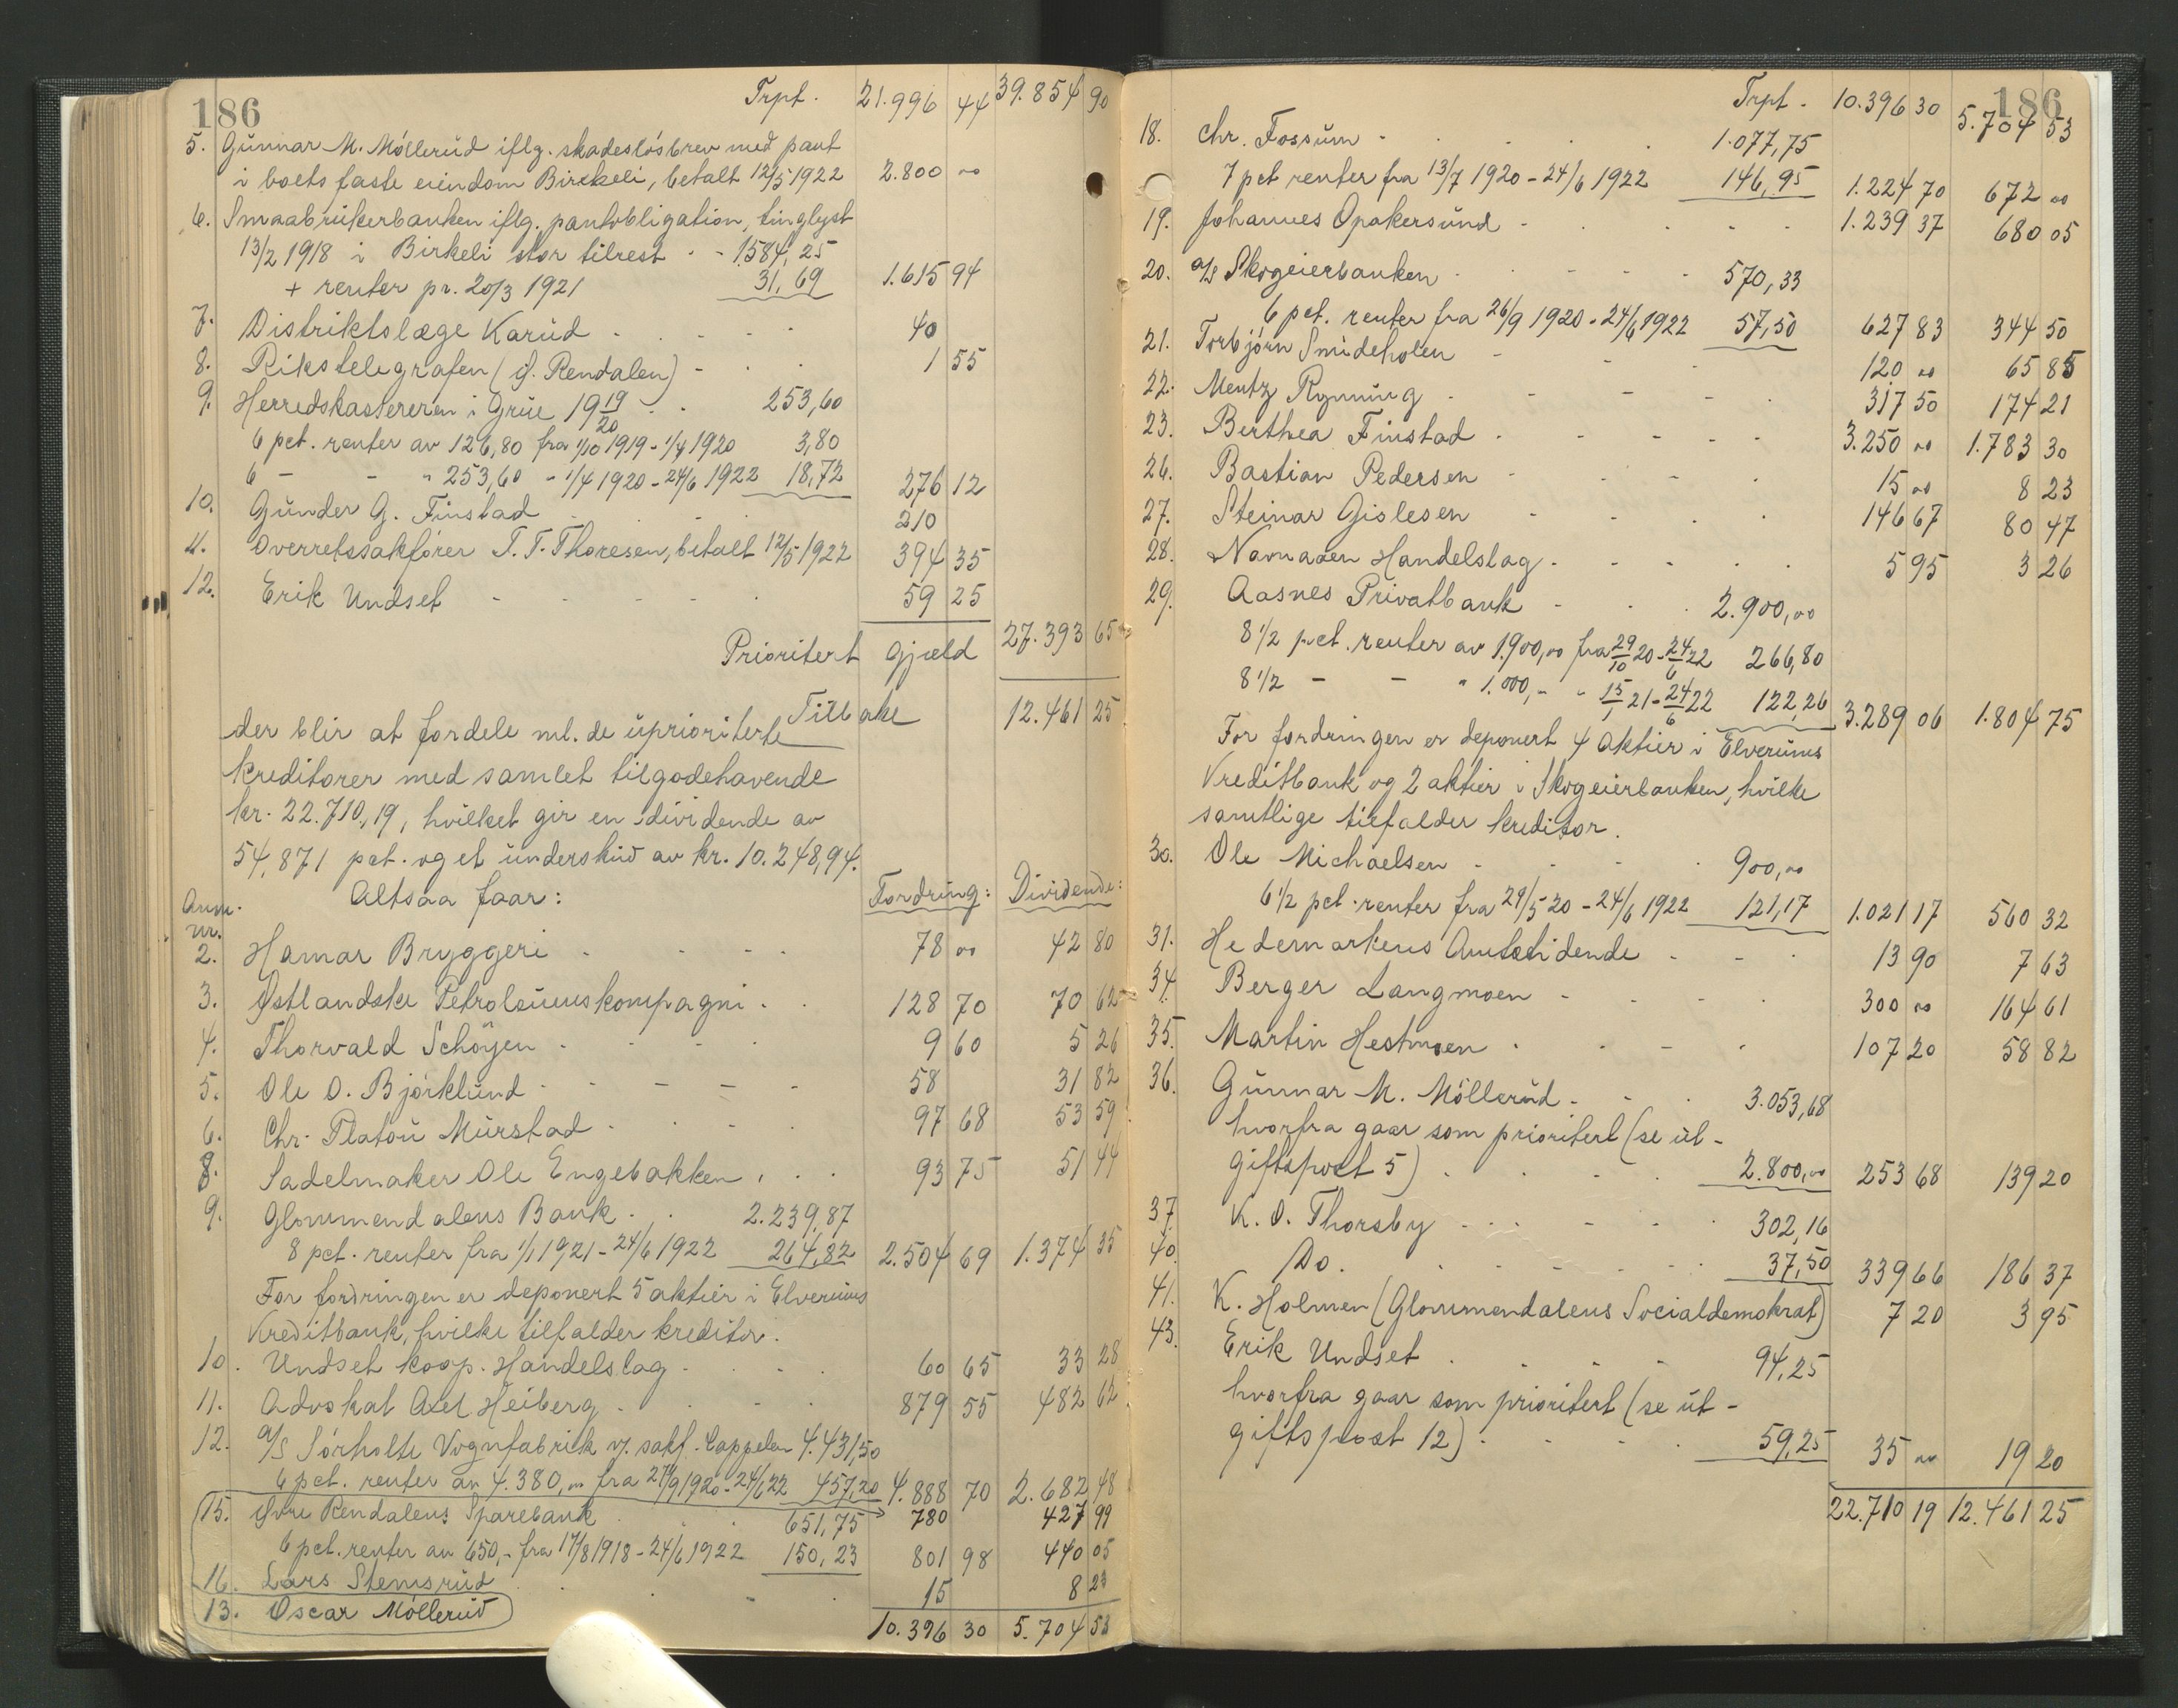 186
Trpt. 21.996 44 39.854 90
5. Gunnar M. Möllerud iflg. skadeslösbrev med pant
i boets faste eiendom Birkeli, betalt 12/5 1922 2.800 00
6. Smaabrukerbanken iflg. pantobligation, tinglyst
13/2 1918 i Birkeli stor tilrest - - 1584,25
+ renter pr. 20/3 1921 31,69 1.615 94
7. Distriktslæge Karud - - - 40
8. Rikstelegrafen (i. Rendalen) - - - 1 55
9. Herredskasereren i Grue 19 19/20 - - 253,60
6 pct. renter av 126,80 fra 1/10 1919 - 1/4 1920 3,80
6 - - " 253,60 - 1/4 1920 - 24/6 1922 18,72 276 12
10. Gunder G. Finstad 210
11. Overretssakförer T. T. Thoresen, betalt 12/5 1922 394 35
12. Erik Undset - - - - 59 25
Prioritert gjæld 27.393 65
Tilbake 12.461 25
der blir at fordele ml. de uprioriterte
kreditorer med samlet tilgodehavende
kr. 22.710,19, hvilket gir en dividende av
54,871 pct. og et underskud av kr. 10.248,94.
Altsaa faar: Fordring: Dividende:
Anm.
nr.
2. Hamar Bryggeri - - - 78 00 42 80
3. Østlandske Petroleumskompagni - - 128 70 70 62
4. Thorvald Schöyen - - - - 9 60 5 26
5. Ole O. Björklund - - - - - 58 31 82
6. Chr. Platou Murstad - - - - 97 68 53 59
8. Sadelmaker Ole Engebakken - - - 93 75 51 44
9. Glommendalens Bank - - 2.239,87
8 pct. renter fra 1/1 1921 - 24/6 1922 264,82 2.504 69 1.374 35
For fordringen er deponert 5 aktier i Elverums
Kreditbank, hvilke tilfalder kreditor.
10. Undset koop. Handelslag - - - 60 65 33 28
11. Advokat Axel Heiberg - - - 879 55 482 62
12. A/S Sörholte Vognfabrik v/ sakf. Cappelen 4.431,50
6 pct. renter av 4.380,00 fra 27/9 1920 - 24/6 22 457,20 4.888 70 2.682 48
15. Øvre Rendalens Sparebank 651,75 780 427 99
6 pct. renter av 650,- fra 17/8 1918 - 24/6 1922 150,23 801 98 440 05
16. Lars Stemsrud 15 8 23
13. Oscar Möllerud
10.396 30 5.704 53
186
Trpt. 10.396 30 5.704 53
18. Chr. Fossum - - - 1.077,75
7 pct renter fra 13/7 1920 - 24/6 1922 146,95 1.224 70 672 00
19. Johannes Opakersund - - - - 1.239 37 680 05
20. A/S Skogeierbanken - - - - 570,33
6 pct. renter fra 26/9 1920 - 24/6 1922 57,50 627 83 344 50
21. Torbjörn Smideholen - - - 120 00 65 85
22. Mentz Rynning - - - - 317 50 174 21
23. Berthea Finstad - - - - - 3.250 00 1.783 30
26. Bastian Pedersen - - - 15 00 8 23
27. Steinar Gislesen - - - - 146 67 80 47
28. Navnaaen Handelslag - - - - 5 95 3 26
29. Aasnes Privatbank - - - 2.900,00
8 1/2 pct. renter av 1.900,00 fra 29/10 20 - 24/6 22 266,80
8 1/2 - - " 1.000,- " 15/1 21 - 24/6 22 122,26 3.289 06 1.804 75
For fordringen er deponert 4 aktier i Elverums
Kreditbank og 2 aktier i Skogeierbanken, hvilke
samtlige tilfalder kreditor.
30. Ole Michaelsen - - - - 900,00
6 1/2 pct. renter fra 29/5 20 - 24/6 1922 121,17 1.021 17 560 32
31. Hedemarkens Amtstidende - - - 13 90 7 63
34. Berger Langmoen - - - - 300 00 164 61
35. Martin Hestmoen - - - - 107 20 58 82
36. Gunnar M. Möllerud - - - 3.053,68
hvorfra gaar som prioritert (se ut-
giftspost 5) - - - - 2.800,00 253 68 139 20
37. K. O. Thorsby - - - - - 302,16
40. Do. - - - - - 37,50 339 66 186 37
41. K. Holmen (Glommendalens Socialdemokrat) 7 20 3 95
43. Erik Undset - - - - 94,25
hvorfra gaar som prioritert (se ut-
giftspost 12) - - - - 59,25 35 00 19 20
22.710 19 12.461 25